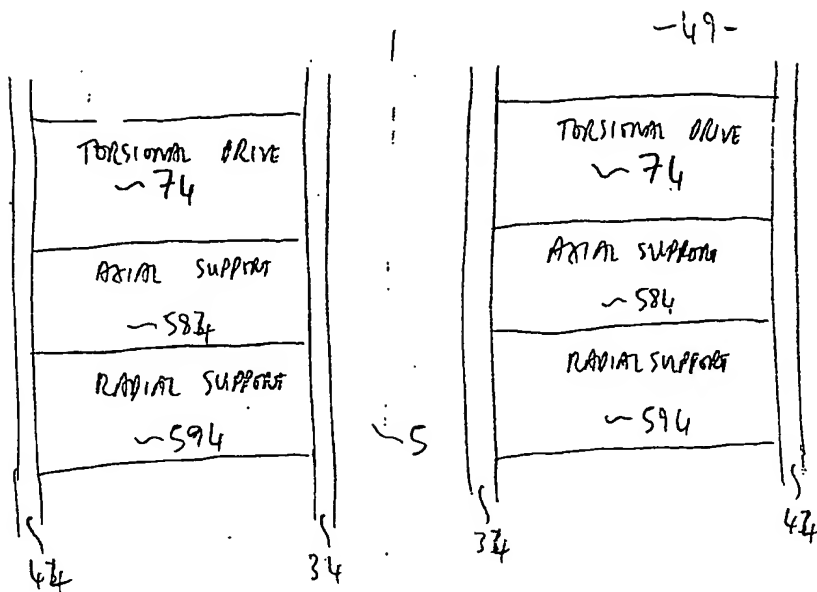 -49-
TORSIONAL DRIVE
74
AXIAL SUPPORT
584
RADIAL SUPPORT
594
44
34
5
TORSIONAL DRIVE
74
AXIAL SUPPORT
584
RADIAL SUPPORT
594
34
44